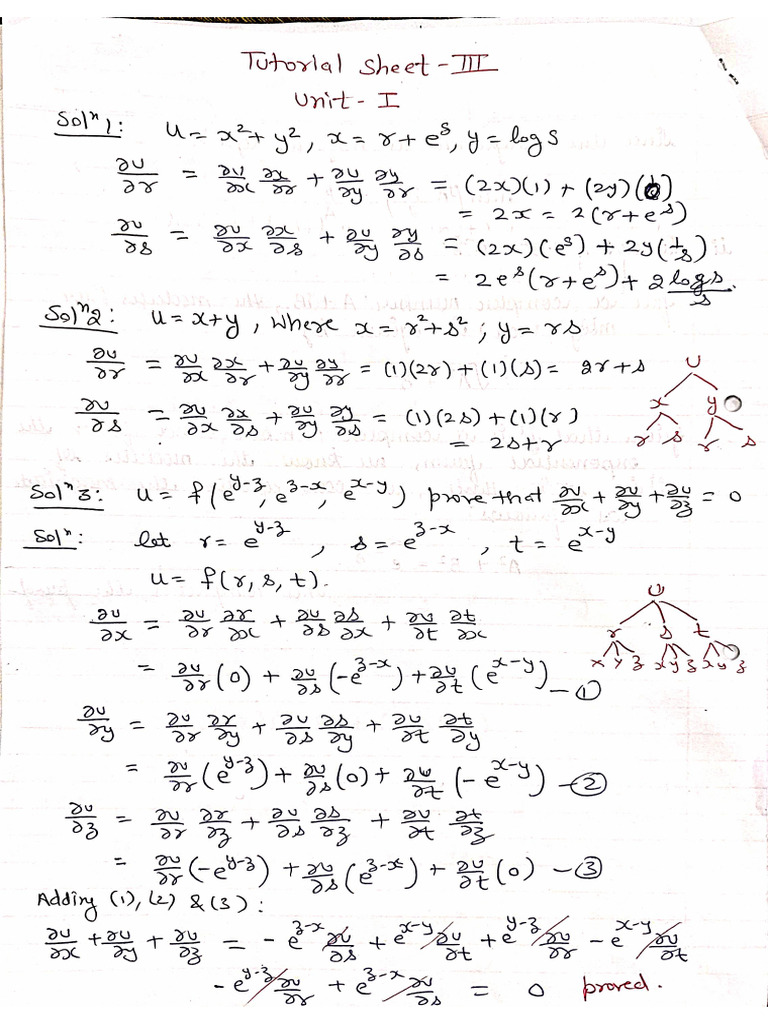 Tutorial Sheet - III
Unit - I
Solⁿ 1: u = x² + y², x = r + eˢ, y = log s
∂u/∂r = ∂u/∂x ∂x/∂r + ∂u/∂y ∂y/∂r = (2x)(1) + (2y)(0)
= 2x = 2(r + eˢ)
∂u/∂s = ∂u/∂x ∂x/∂s + ∂u/∂y ∂y/∂s = (2x)(eˢ) + 2y(1/s)
= 2eˢ(r + eˢ) + 2 log s/s.
Solⁿ 2: u = x + y, where x = r² + s²; y = rs
∂u/∂r = ∂u/∂x ∂x/∂r + ∂u/∂y ∂y/∂r = (1)(2r) + (1)(s) = 2r + s
∂u/∂s = ∂u/∂x ∂x/∂s + ∂u/∂y ∂y/∂s = (1)(2s) + (1)(r)
= 2s + r
u
x y
r s r s
Solⁿ 3: u = f(e^(y-z), e^(z-x), e^(x-y)) prove that ∂u/∂x + ∂u/∂y + ∂u/∂z = 0
Solⁿ: let r = e^(y-z), s = e^(z-x), t = e^(x-y)
u = f(r, s, t).
∂u/∂x = ∂u/∂r ∂r/∂x + ∂u/∂s ∂s/∂x + ∂u/∂t ∂t/∂x
= ∂u/∂r (0) + ∂u/∂s (-e^(z-x)) + ∂u/∂t (e^(x-y)) — ①
u
r s t
x y z x y z x y z
∂u/∂y = ∂u/∂r ∂r/∂y + ∂u/∂s ∂s/∂y + ∂u/∂t ∂t/∂y
= ∂u/∂r (e^(y-z)) + ∂u/∂s (0) + ∂u/∂t (-e^(x-y)) — ②
∂u/∂z = ∂u/∂r ∂r/∂z + ∂u/∂s ∂s/∂z + ∂u/∂t ∂t/∂z
= ∂u/∂r (-e^(y-z)) + ∂u/∂s (e^(z-x)) + ∂u/∂t (0) — ③
Adding (1), (2) & (3):
∂u/∂x + ∂u/∂y + ∂u/∂z = -e^(z-x) ∂u/∂s + e^(x-y) ∂u/∂t + e^(y-z) ∂u/∂r - e^(x-y) ∂u/∂t
-e^(y-z) ∂u/∂r + e^(z-x) ∂u/∂s = 0 proved.